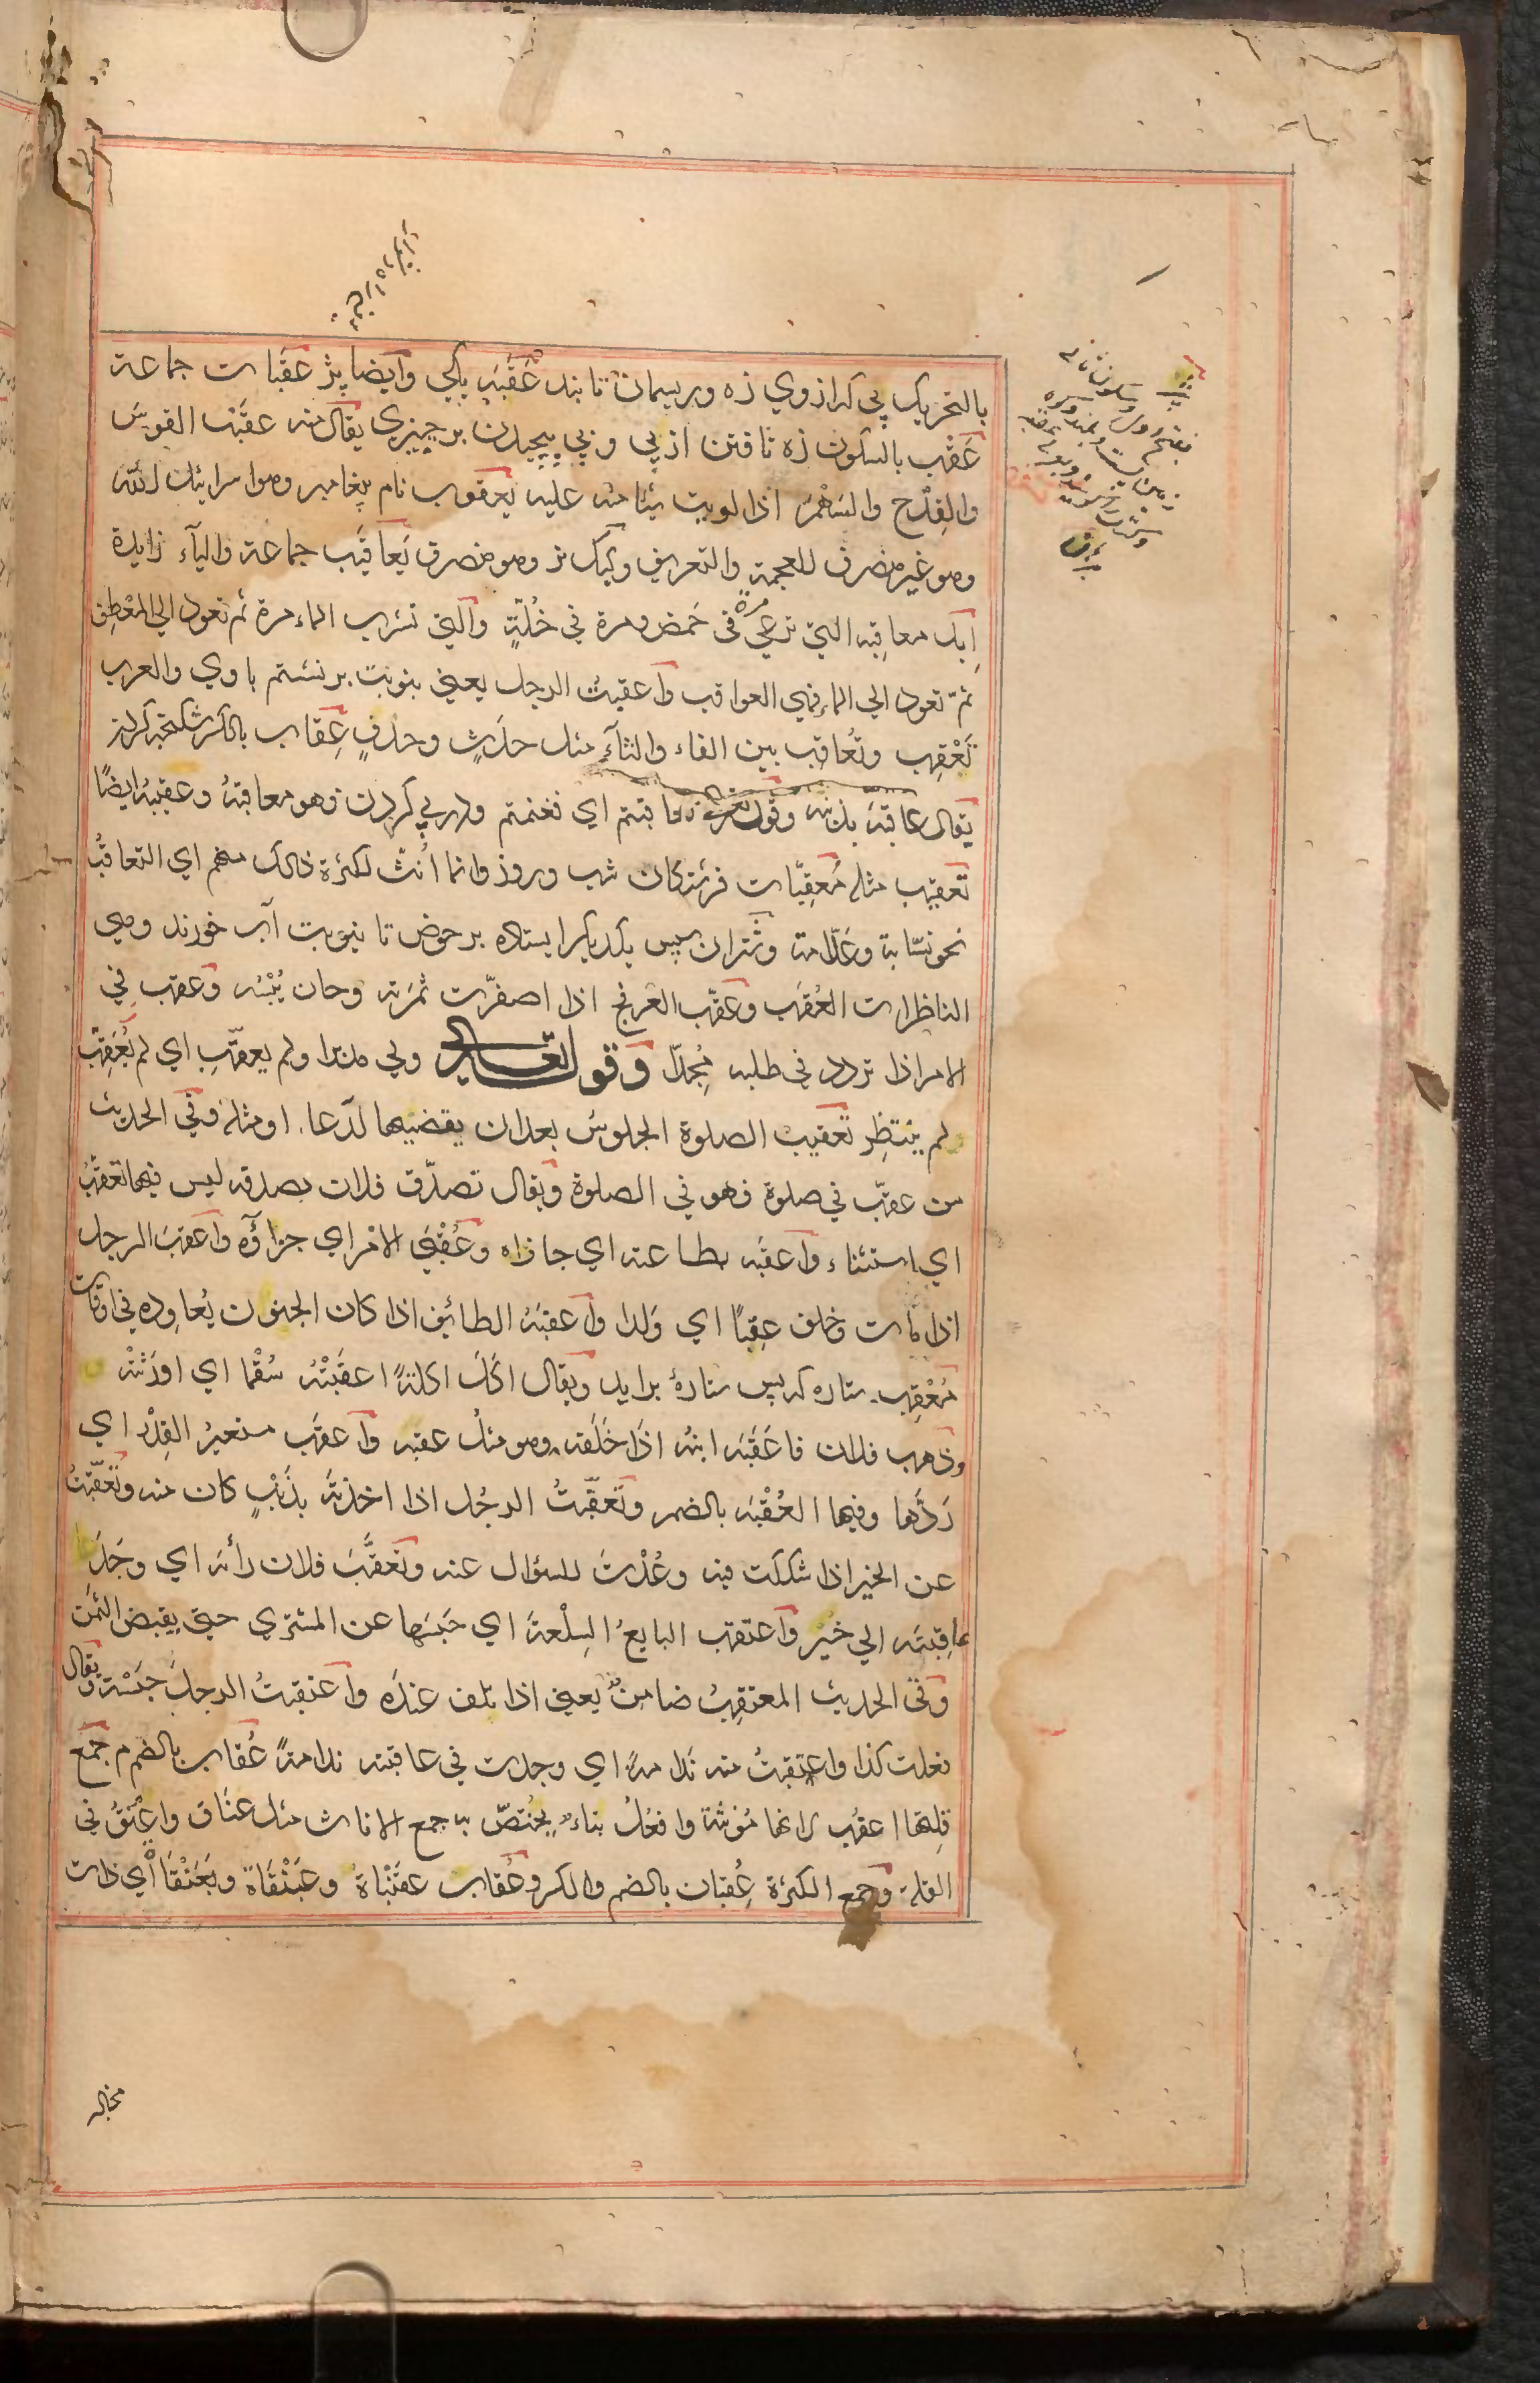 بالتحريك پي كه ازوي زه وريسمان تابند عَقَبَه يكي وايضا يز عقبات جماعة
عَقْب بالسكون زه تافتن از پي و پي پيچيدن بر چيزي يقال منه عقبت القوس
والقِدْح والسَهْمَ اذا لويت شيئا منه عليه يعقوب نام پيغامبر وهو اسرائيل الله
وهو غير منصرف للعجمة والتعريف وكبك نر وهو منصرف يَعاقيب جماعة والياء زايدة
اِبل معاقِبه التي ترعي مرة في حَمض ومرة في خُلّةٍ والتي تشرب الماء مرة ثم تعود الي المَعْطِن
ثمّ تعود الي الماء فهي العواقب واعقبتُ الرجل يعني بنوبت برنشستم با وي والعرب
تُعْقِب وتُعاقِب بين الفاء والثاء مثل حدَثٍ وحدفٍ عِقاب بالكسر شكنجه كردن
يقال عاقبَه بذنبه وقوله تعالى فعاقبتم اي فغنمتم ودر پي كردن وهو معاقبَهُ وعقبَهُ ايضًا
تعقيب مثله مُعقِبّات فرشتگان شب وروز وانما اُنّث لكثرة ذالك منهم اي التعاقبُ
نحو نسّابة وعَلّامة وشتران سپس يكديگر ايستاده بر حوض تا بنوبت آب خورند وهي
الناظرات العُقَب وعقّب العرفج اذا اصفرّت ثمرَته وحان يُبْسُه وعقب في
الامر اذا تردد في طلبه مُجِدّا وقوله تعالى ولي مدبرا ولم يعقِّب اي لم يُعَقِّب
ولم ينتظِر تعقيب الصلوة الجلوسُ بعد ان يقضيها لدعاء او مثله وفي الحديث
من عقّب في صلوة فهو في الصلوة ويقال تصدّق فلان بصدقه ليس فيها تعقيبُ
اي استثناء واعقَبه بطاعته اي جازاه وعُقْبَى الامْر اي جزاؤُه واعقبَ الرجل
اذا مات وخلف عقِبًا اي وَلدا واعقبَهُ الطائف اذا كان الجنون يُعاوِده في اوقات
مُعْقِب ستاره كه پس ستارهٔ برايد ويقال اَكَلَ اكلةً اعقَبَتْهُ سُقْمًا اي اورَثتْه
وذهب فلان فاعَقَبَه ابنُه اذَا خَلَفه وهو مثلُ عقبه واعقَب مستعيرُ القِدْر اي
رَدَّها وفيها العُقْبَه بالضمر وتَعقّبتُ الرجُل اذا اخذتَه بذَنْبٍ كان منه وتَعقّبتُ
عن الخبر اذا شككت فيه وعُدْتَ للسؤال عنه وتعَقَّبَ فلان رأيَه اي وجَدَ
عاقِبتَه الي خَيْر واعتقب البايعُ السِلْعةَ اي حَبَسَها عن المشتري حتي يقبض الثمن
وفي الحديث المعتقِبُ ضامنٌ يعني اذا تلف عندَه واعتقبتُ الرجلَ حبَسْته ويقال
فعلت كذا واعتقبتُ منه ندامةً اي وجدت في عاقبته ندامةً عُقاب بالضم م جمع
قِلتها اعقُب لانها مُؤنثة وافعُلُ بناءٌ يُختصّ به جمع الاناث مثل عَنَاق واعْنُقُ في
القلة وجمع الكثرة عِقبان بالضم والكسر وعُقاب عقَنْباةٌ وعَبَنْقاة وبَعَنْقَاة اي ذات
مخاله